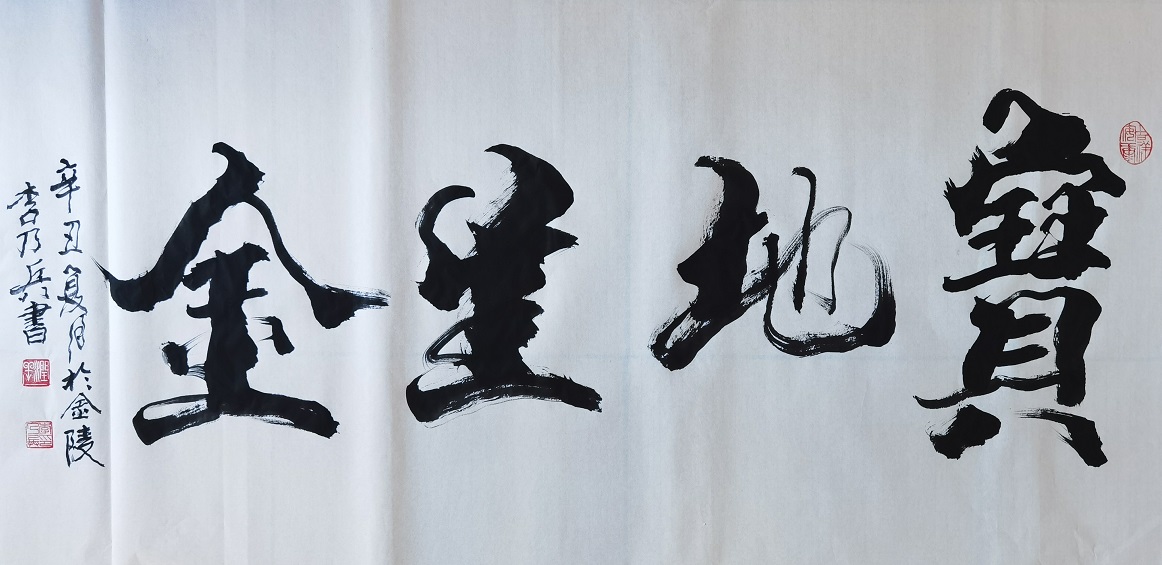 寶地生金
辛丑夏月於金陵
李乃兵書